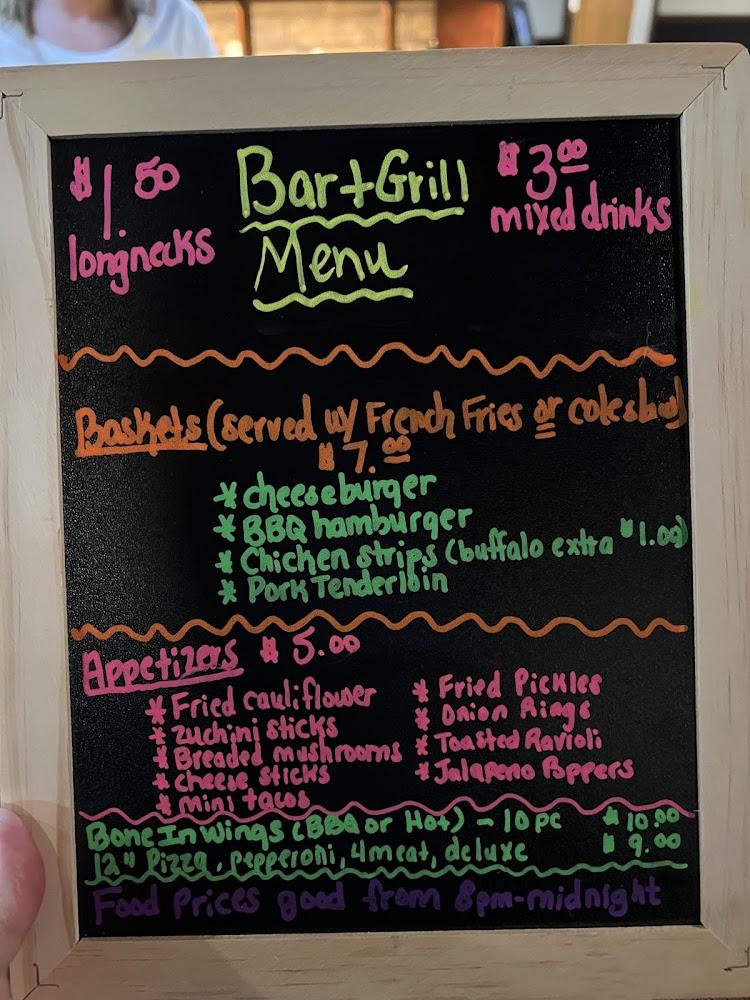 $1.50
longnecks
Bar+Grill
Menu
$3.00
mixed drinks
Baskets (served w/ French Fries or coleslaw)
$7.00
* cheeseburger
* BBQ hamburger
* Chicken strips (buffalo extra $1.00)
* Pork Tenderloin
Appetizers $5.00
* Fried cauliflower
* zuchini sticks
* Breaded mushrooms
* cheese sticks
* mini tacos
* Fried Pickles
* Onion Rings
* Toasted Ravioli
* Jalapeno Poppers
Bone In Wings (BBQ or Hot) - 10 pc $10.00
12" Pizza, pepperoni, 4 meat, deluxe $9.00
Food Prices good from 8pm-midnight